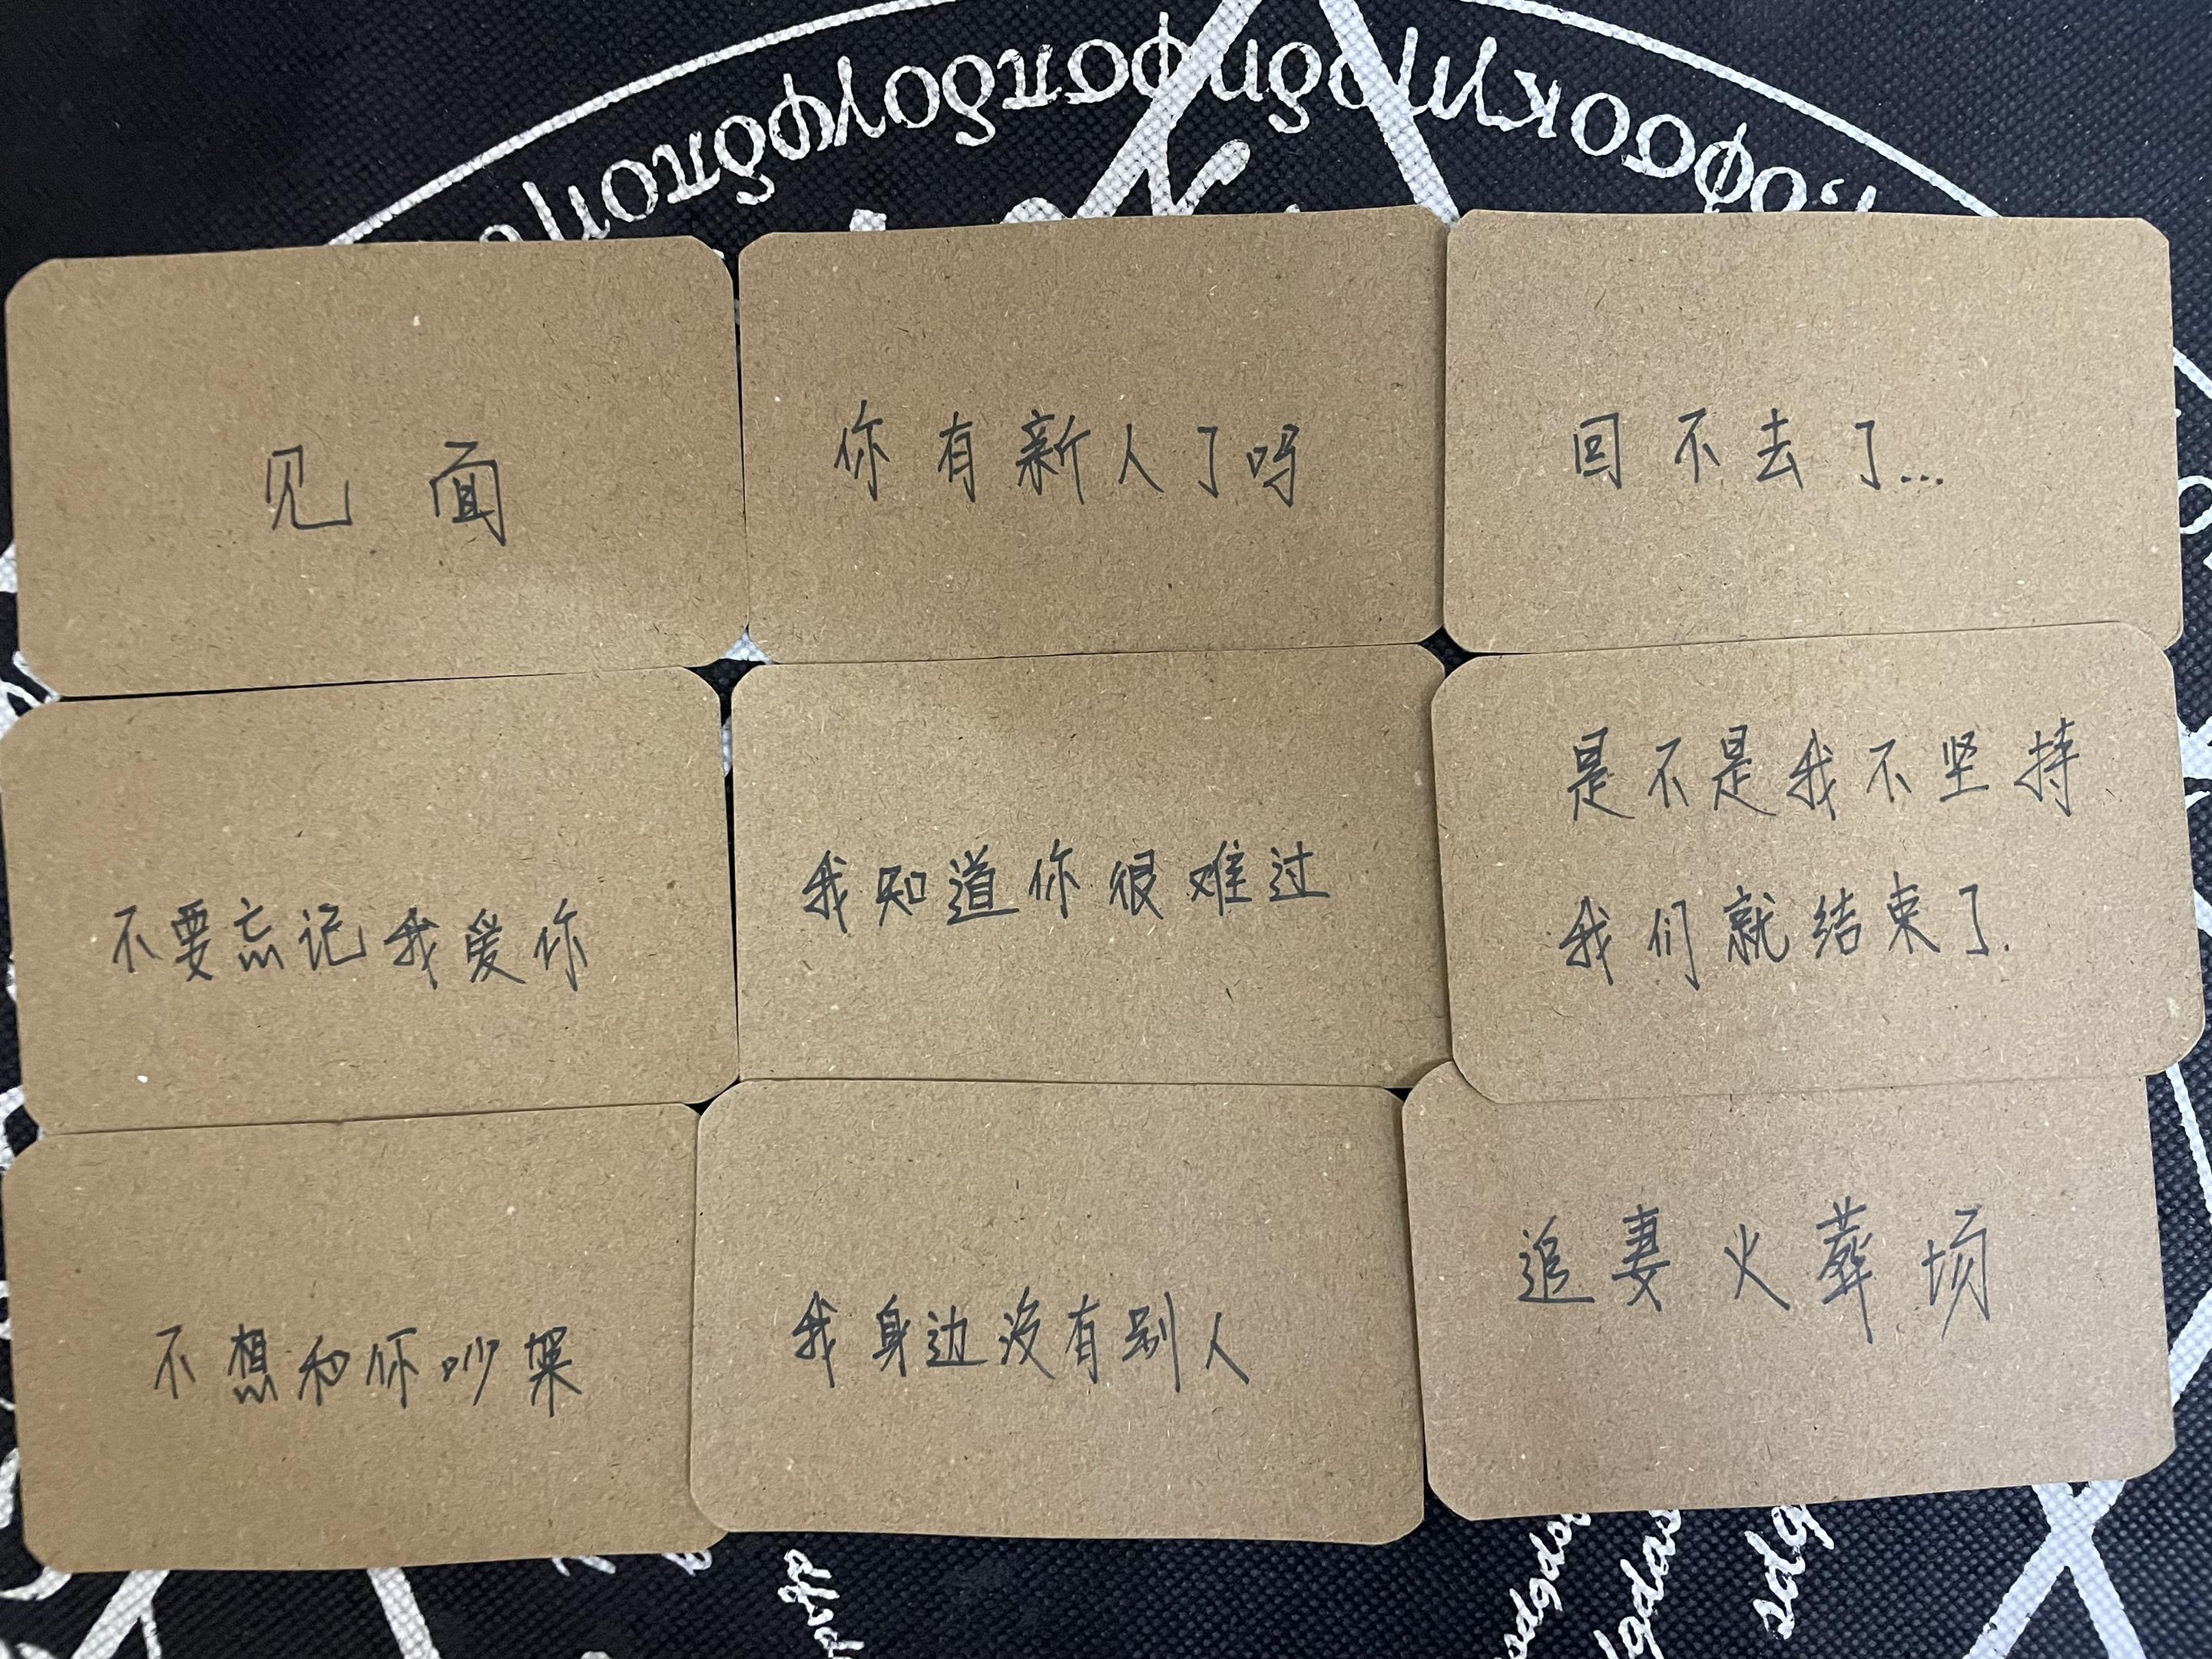 见面
你有新人了吗
回不去了...
不要忘记我爱你
我知道你很难过
是不是我不坚持
我们就结束了.
不想和你吵架
我身边没有别人
追妻火葬场